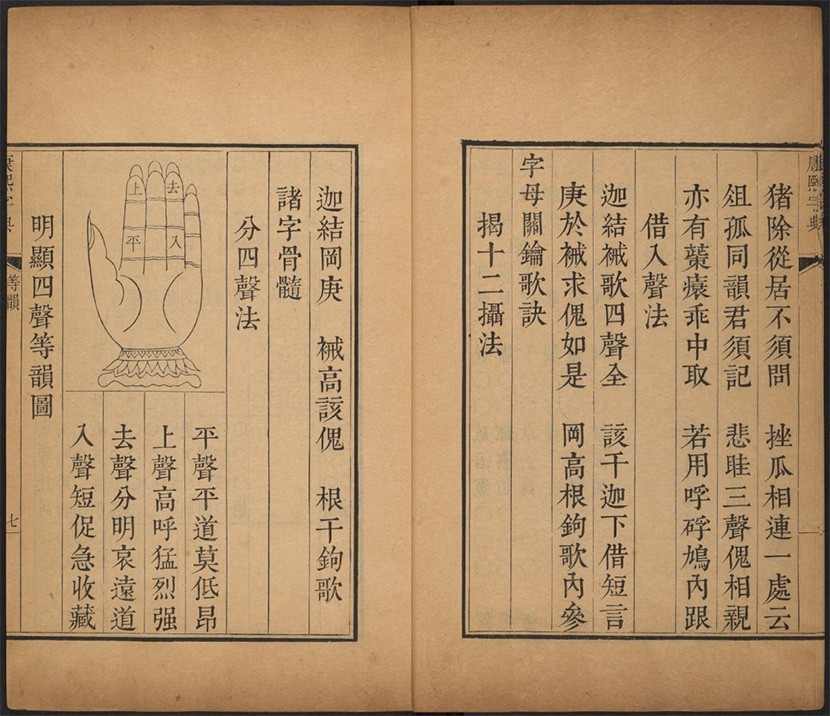 康熙字典
猪除從居不須問　挫瓜相連一處云
俎孤同韻君須記　悲眭三聲傀相親
亦有蔂瘣乖中取　若用呼鳩內跟
借入聲法
迦結裓歌四聲全　該干迦下借短言
庚於裓求傀如是　岡高根鉤歌內參
字母關鑰歌訣
揭十二攝法
迦結岡庚　裓高該傀　根干鉤歌
諸字骨髓
分四聲法
去
入
上
平
平聲平道莫低昂
上聲高呼猛烈强
去聲分明哀遠道
入聲短促急收藏
明顯四聲等韻圖
康熙字典
等韻
七